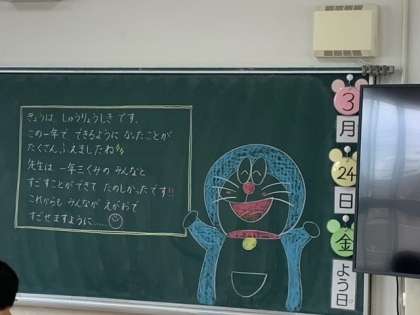 きょうは しゅうりょうしき です。
この一年で できるように なったことが
たくさん ふえましたね
先生は 一年三くみの みんなと
すごすことができて たのしかったです!!
これからも みんなが えがおで
すごせますように……
3
月
24
日
金
よう日